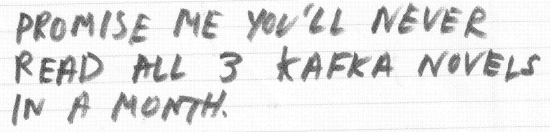 PROMISE ME YOU'LL NEVER
READ ALL 3 KAFKA NOVELS
IN A MONTH.